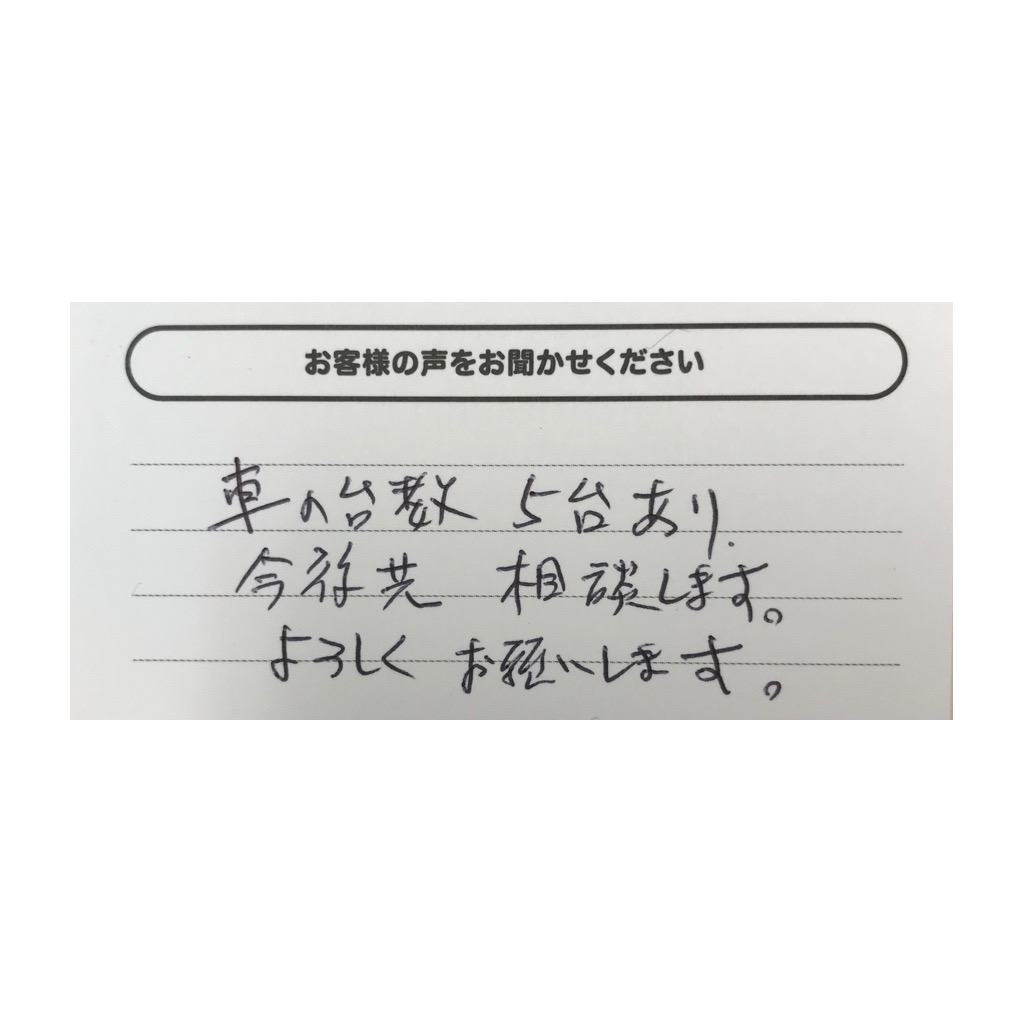 お客様の声をお聞かせください
車の台数 5台あり.
今後共 相談します。
よろしく お願いします。